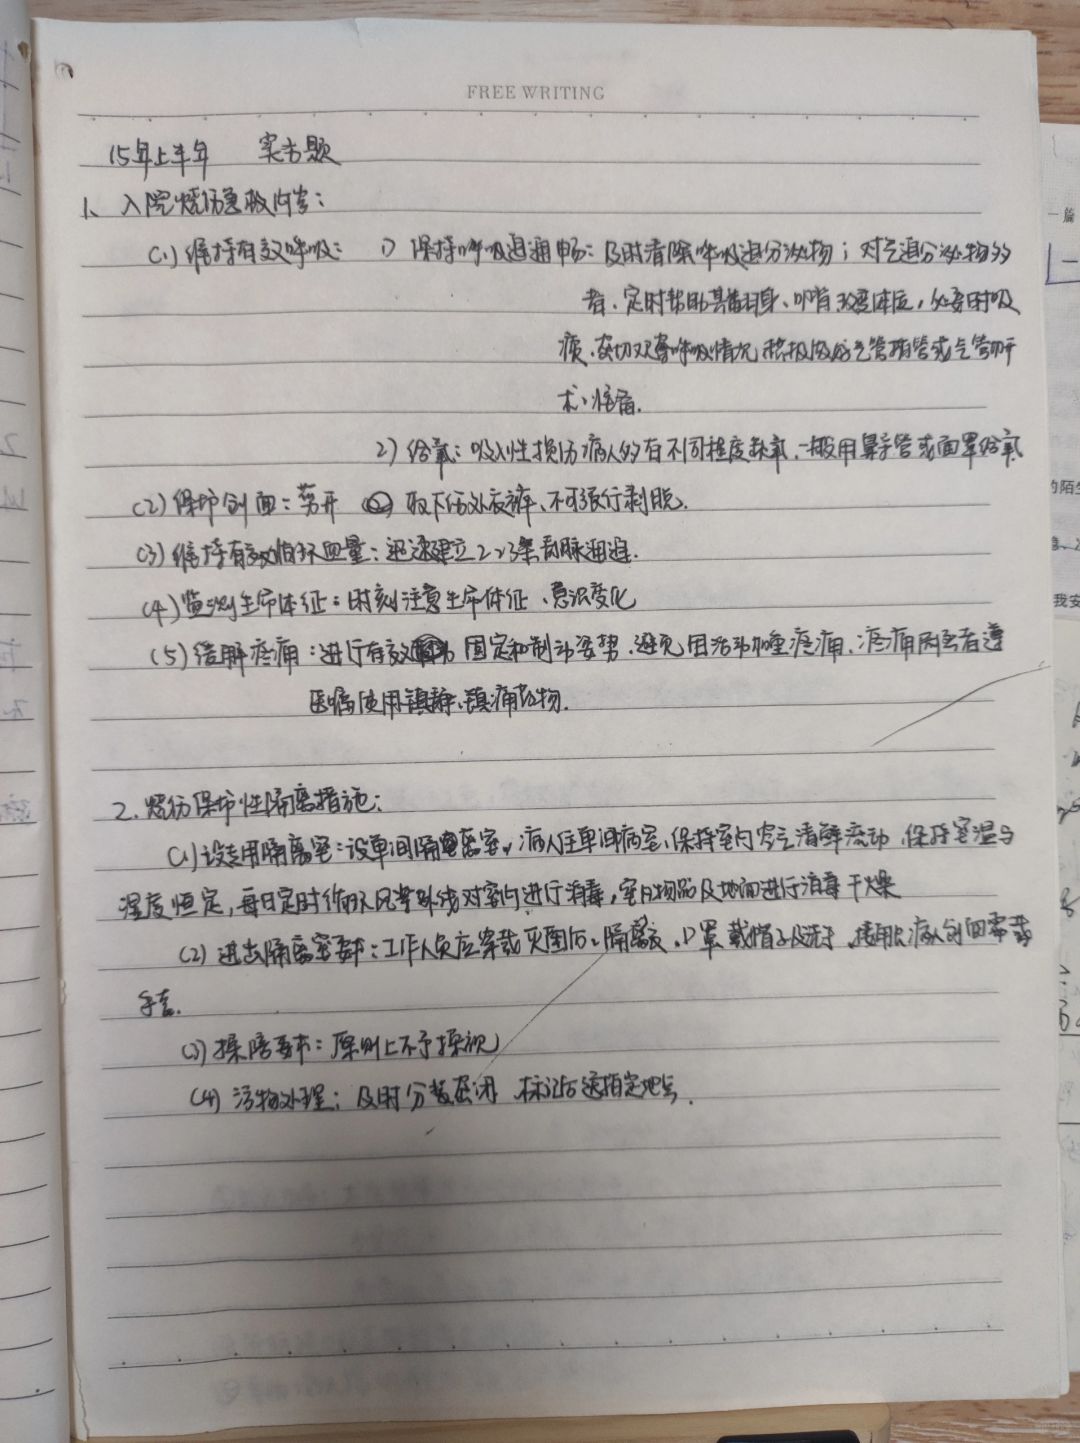 FREE WRITING
15年上半年 实务题
1、入院烧伤急救内容：
(1)维持有效呼吸： 1) 保持呼吸道通畅：及时清除呼吸道分泌物；对气道分泌物多
者、定时帮助其翻身、叩背、改变体位，必要时吸
痰、密切观察呼吸情况 积极做好气管插管或气管切开
术准备.
2) 给氧：吸入性损伤病人多有不同程度缺氧、一般用鼻导管或面罩给氧
(2)保护创面：剪开 取下伤处衣裤、不可强行剥脱.
(3)维持有效循环血量：迅速建立2~3条静脉通道.
(4)监测生命体征：时刻注意生命体征、意识变化
(5)缓解疼痛：进行有效 固定和制动姿势、避免因活动加重疼痛、疼痛 者遵
医嘱使用镇静、镇痛药物.
2、烧伤保护性隔离措施：
(1)设专用隔离室：设单间隔离室，病人住单间病室、保持室内空气清鲜流动、保持室温与
湿度恒定，每日定时 紫外线对室内进行消毒，室内物品及地面进行消毒干燥
(2)进出隔离室要求：工作人员应穿戴灭菌后 隔离衣、口罩、戴帽子及洗手、接 病人创面需戴
手套.
(3)探陪要求：原则上不予探视
(4)污物处理：及时分装密闭、标记后送指定地点.
一篇
的陌生
我安